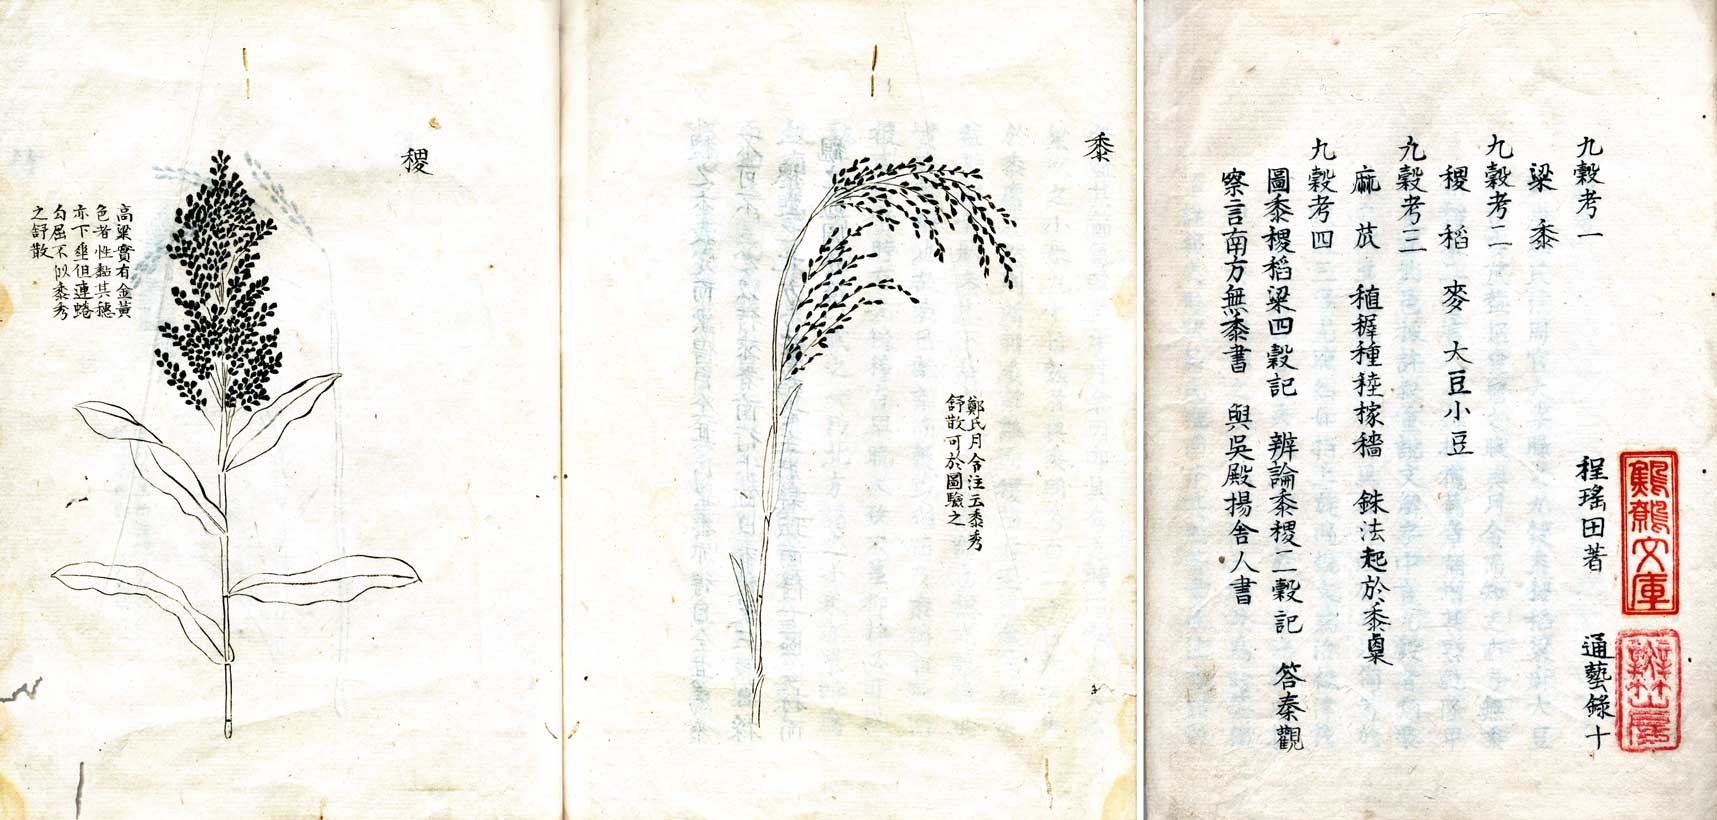 九穀考一 程瑤田著 通藝錄十
粱 黍
九穀考二
稷 稻 麥 大豆小豆
九穀考三
麻 苽 稙稺種稑稼穡 銖法起於黍㮚
九穀考四
圖黍稷稻粱四穀記 辨論黍稷二穀記 答秦觀
察言南方無黍書 與吳殿揚舍人書
文庫
黍
鄭氏月令注云黍秀
舒散可於圖驗之
稷
高粱實有金黃
色者性黏其穗
亦下垂但連蜷
勾屈不似黍秀
之舒散